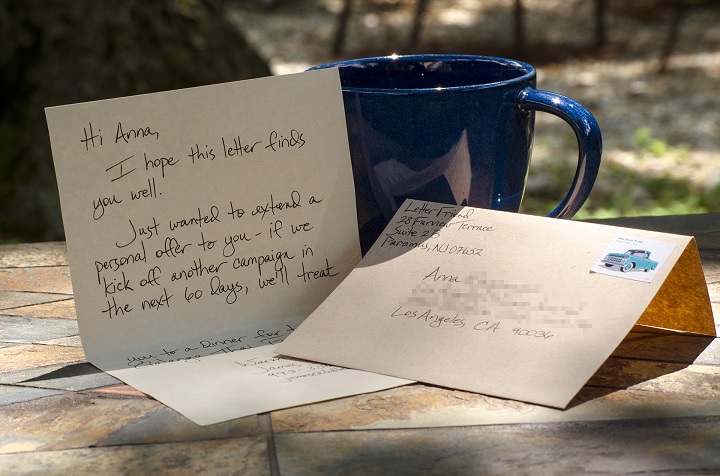 Hi Anna,
I hope this letter finds
you well.
Just wanted to extend a
personal offer to you - if we
kick off another campaign in
the next 60 days, we'll treat
you to a Dinner for
Letter Friend
28 Fairview Terrace
Suite 25
Paramus, NJ 07652
Anna
Los Angeles, CA 90036